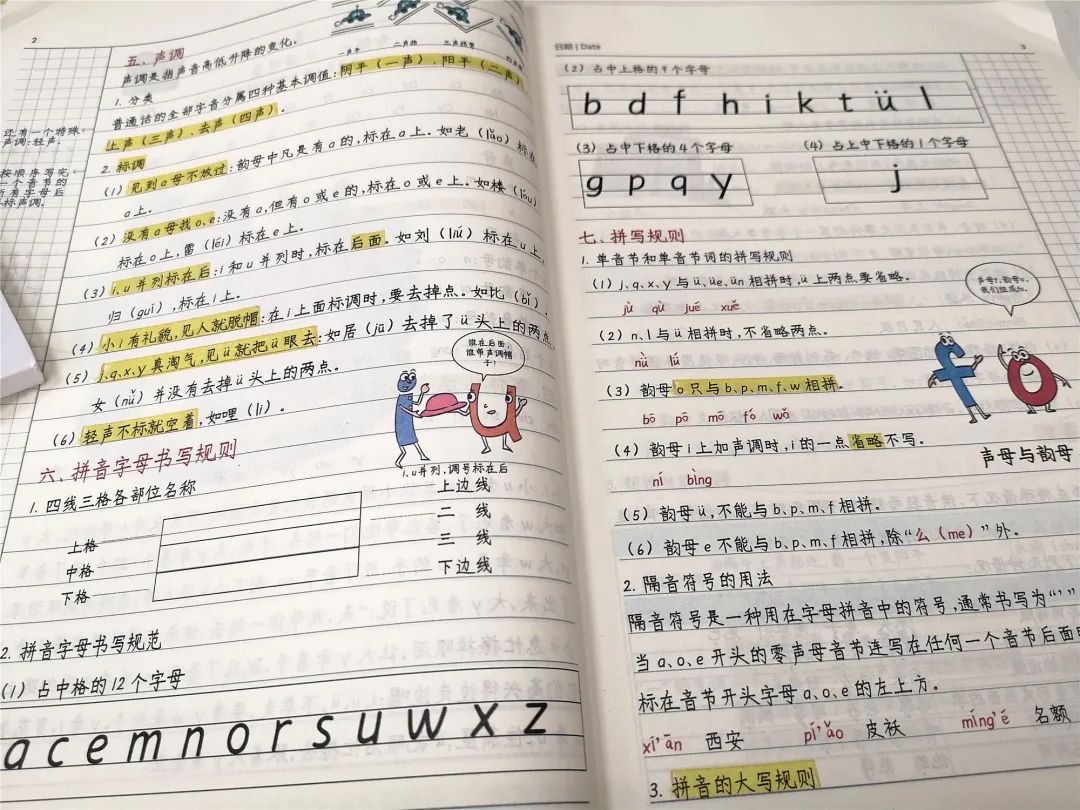 2
五、声调
声调是指声音高低升降的变化。
1. 分类
普通话的全部字音分属四种基本调值:阴平(一声)、阳平(二声)
上声(三声)、去声(四声)。
还有一个特殊
声调:轻声。
2. 标调
(1)见到a母不放过:韵母中凡是有a的,标在a上。如老(lǎo)标在
a上。
按顺序写完
一个音节的
所有字母后
标声调。
(2)没有a母找o、e:没有a,但有o或e的,标在o或e上。如楼(lóu)
标在o上,雷(léi)标在e上。
(3)i、u并列标在后:i和u并列时,标在后面。如刘(liú)标在u上,
归(guī),标在i上。
(4)小i有礼貌,见人就脱帽:在i上面标调时,要去掉点。如比(bǐ)。
(5)j、q、x、y真淘气,见ü就把ü眼去:如居(jū)去掉了ü头上的两点,
女(nǚ)并没有去掉ü头上的两点。
(6)轻声不标就空着,如哩(li)。
谁在后面,
谁带声调帽
子!
i、u并列,调号标在后
六、拼音字母书写规则
1. 四线三格各部位名称
上格
中格
下格
上边线
二 线
三 线
下边线
2. 拼音字母书写规范
(1)占中格的12个字母
a c e m n o r s u w x z
日期 | Date
3
(2)占中上格的9个字母
b d f h i k t ü l
(3)占中下格的4个字母
g p q y
(4)占上中下格的1个字母
j
七、拼写规则
1. 单音节和单音节词的拼写规则
(1)j、q、x、y与ü、üe、ün相拼时,ü上两点要省略。
jù qù jué xuě
(2)n、l与ü相拼时,不省略两点。
nǜ lǘ
(3)韵母o只与b、p、m、f、w相拼。
bō pō mō fó wǒ
(4)韵母i上加声调时,i的一点省略不写。
ní bìng
声母与韵母
(5)韵母ü,不能与b、p、m、f相拼。
(6)韵母e不能与b、p、m、f相拼,除“么(me)”外。
2. 隔音符号的用法
隔音符号是一种用在字母拼音中的符号,通常书写为“'”
当a、o、e开头的零声母音节连写在任何一个音节后面
标在音节开头字母a、o、e的左上方。
xī'ān 西安 pí'ǎo 皮袄 míng'é 名额
3. 拼音的大写规则